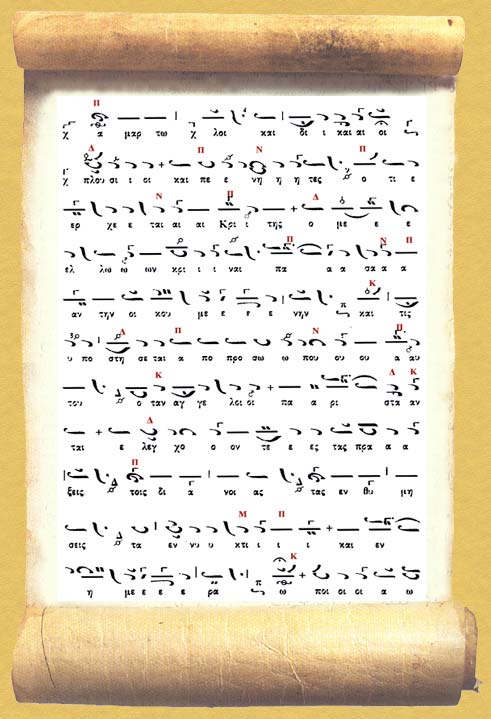 Π
χ α μαρ τω χ λοι και δι ι και αι οι
Δ Π Ν Π
χ πλου σι ι οι και πε ε νη η η τες ο τι ε
Ν Π Δ
ερ χε ε ται αι αι Κρι ι της ο με ε ε
Π Ν Π
ελ λω ω ων κρι ι ι ναι πα α α σα α α
Κ
αν την οι κου με ε ε ε νην π και τις
Δ Π Ν Π
υ πο στη σε ται α πο προ σω ω που ου ου α αυ
Κ Δ Κ
του ο ταν αγ γε λοι οι πα α ρι στα αν
Δ
ται ε λεγ χο ο ον τε ε ες τας πρα α α
Π
ξεις τοις δι α νοι ας τας εν θυ μη
Μ Π
σεις τα εν νυ υ κτι ι ι ι και εν
Κ
η με ε ε ε ρα π ω ποι οι οι α ω